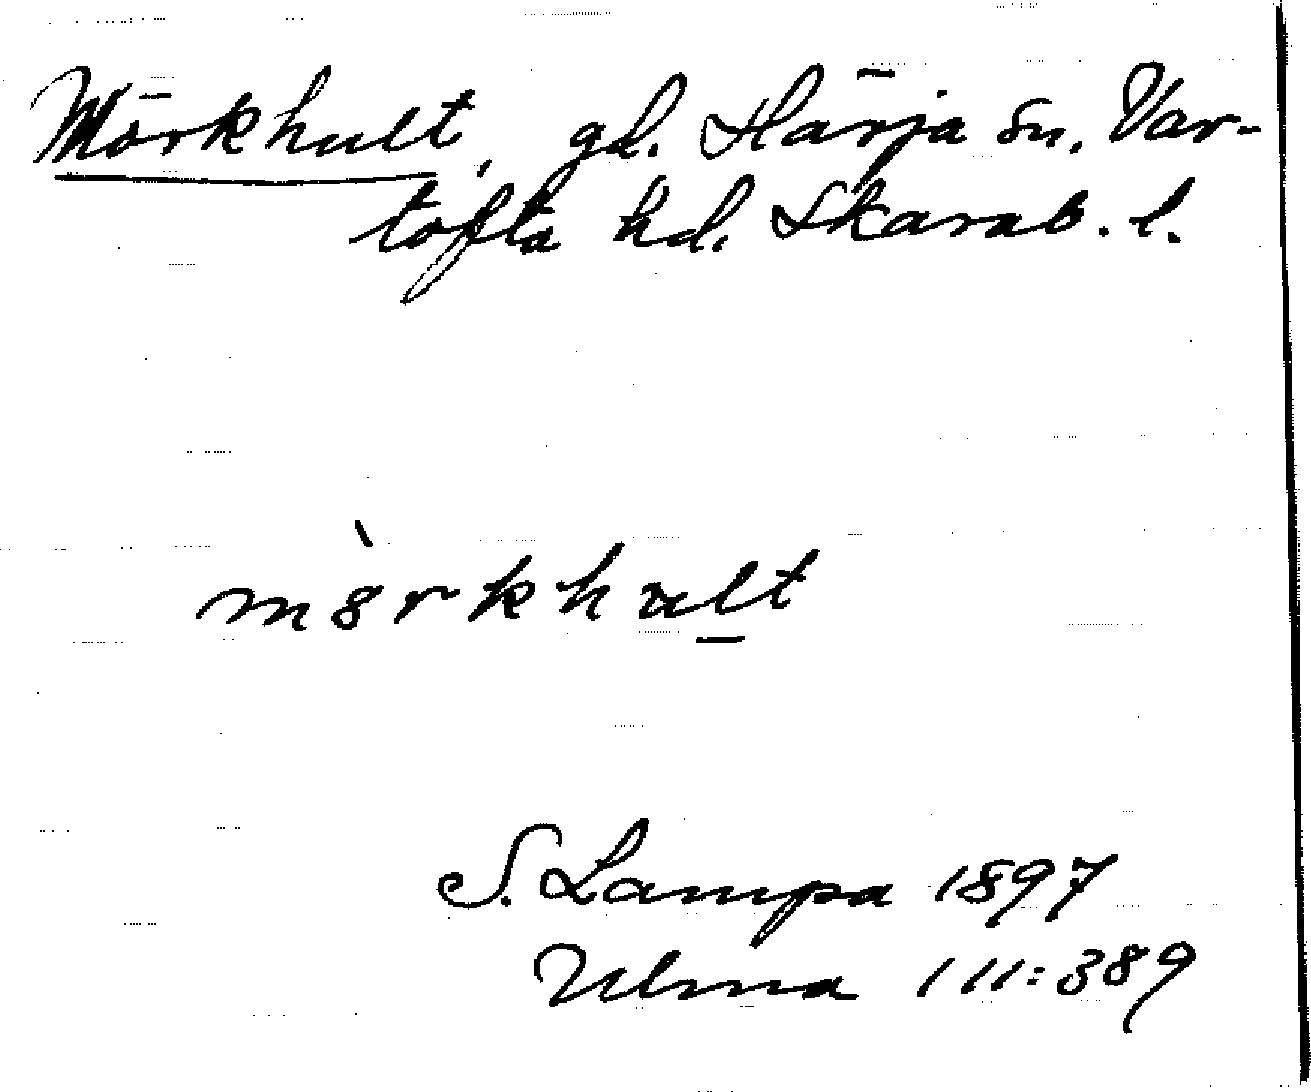 Mörkhult, gd. Härja sn. Var-
tofta hd. Skarab. l.
mörkhult
S. Lampa 1897
Ulma 111:389